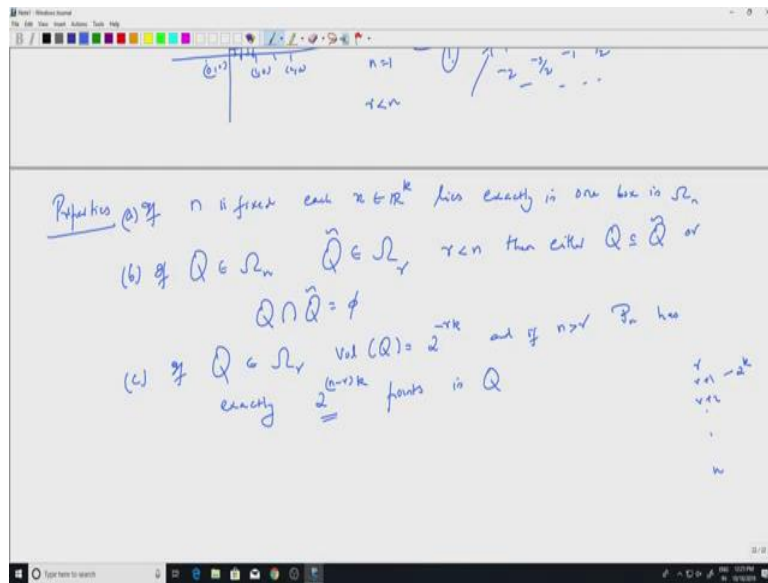 Note1 - Windows Journal
File Edit View Insert Actions Tools Help
n=1
-2 -3/2 -1 1/2
r<n
Properties (a) If n is fixed each x ∈ ℝ^k lies exactly in one box in Ω_n
(b) If Q ∈ Ω_n Q̃ ∈ Ω_r r<n then either Q ⊆ Q̃ or
Q ∩ Q̃ = φ
(c) If Q ∈ Ω_r Vol (Q) = 2^{-rk} and if n>r P_n has
exactly 2^{(n-r)k} points in Q
r
r+1 - 2^k
r+2
.
.
n
Type here to search